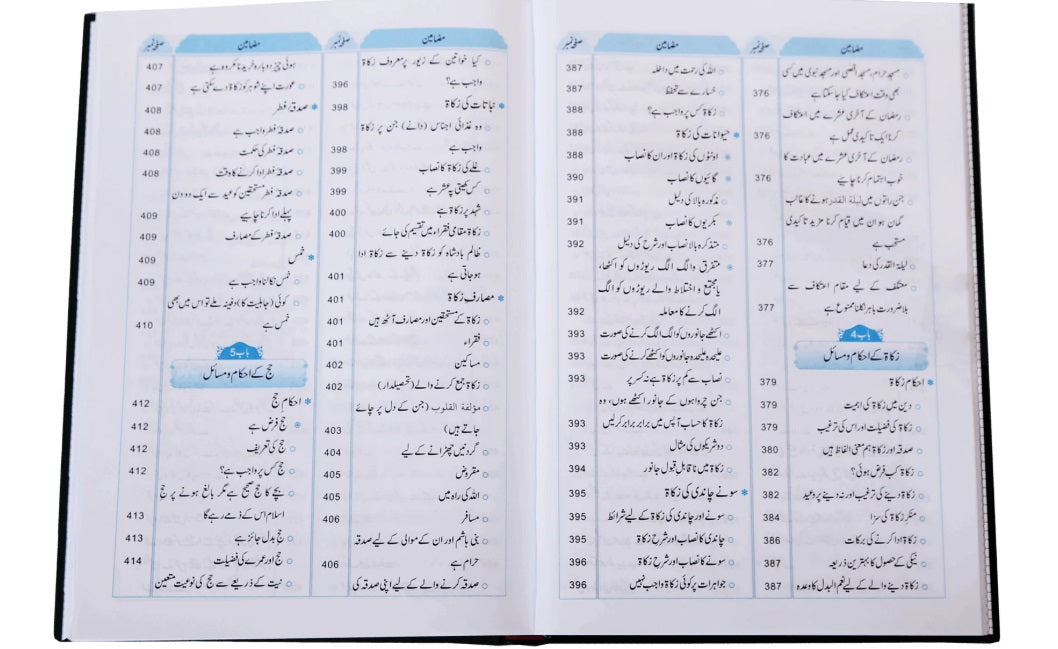 مضامین صفحہ نمبر
مسجد حرام، مسجد اقصی اور مسجد نبوی میں کسی
بھی وقت اعتکاف کیا جا سکتا ہے 376
رمضان کے آخری عشرے میں اعتکاف
کرنا ایک تاکیدی عمل ہے 376
رمضان کے آخری عشرے میں عبادت کا
خوب اہتمام کرنا چاہیے 376
جن راتوں میں لیلۃ القدر ہونے کا غالب
گمان ہو ان میں قیام کرنا مزید تاکیدی
مستحب ہے 376
لیلۃ القدر کی دعا 377
معتکف کے لیے مقام اعتکاف سے
بلاضرورت باہر نکلنا ممنوع ہے 377
باب 4
زکاۃ کے احکام و مسائل
احکام زکاۃ 379
دین میں زکاۃ کی اہمیت 379
زکاۃ کی فضیلت اور اس کی ترغیب 379
صدقہ اور زکاۃ ہم معنی الفاظ ہیں 380
زکاۃ کب فرض ہوئی؟ 382
زکاۃ دینے کی ترغیب اور نہ دینے پر وعید 382
منکر زکاۃ کی سزا 384
زکاۃ ادا کرنے کی برکات 386
نیکی کے حصول کا بہترین ذریعہ 387
زکاۃ دینے والے کے لیے نعم البدل کا وعدہ 387
مضامین صفحہ نمبر
اللہ کی رحمت میں داخلہ 387
خسارے سے تحفظ 387
زکاۃ کس پر واجب ہے؟ 388
حیوانات کی زکاۃ 388
اونٹوں کی زکاۃ اور ان کا نصاب 388
گائیوں کا نصاب 390
مذکورہ بالا کی دلیل 391
بکریوں کا نصاب 391
متذکرہ بالا نصاب اور شرح کی دلیل 392
متفرق والگ الگ ریوڑوں کو اکٹھا،
یا مجتمع و اختلاط والے ریوڑوں کو الگ
الگ کرنے کا معاملہ 392
اکٹھے جانوروں کو الگ الگ کرنے کی صورت 393
علیحدہ علیحدہ جانوروں کو اکٹھے کرنے کی صورت 393
نصاب سے کم پر زکاۃ ہے نہ کسر پر 393
جن چرواہوں کے جانور اکٹھے ہوں، وہ
زکاۃ کا حساب آپس میں برابر برابر کر لیں 393
دو شریکوں کی مثال 393
زکاۃ میں ناقابل قبول جانور 394
سونے چاندی کی زکاۃ 395
سونے اور چاندی کی زکاۃ کے لیے شرائط 395
چاندی کا نصاب اور شرح زکاۃ 395
سونے کا نصاب اور شرح زکاۃ 396
جواہرات پر کوئی زکاۃ واجب نہیں 396
مضامین صفحہ نمبر
کیا خواتین کے زیور پر معروف زکاۃ
واجب ہے؟ 396
نباتات کی زکاۃ 398
وہ غذائی اجناس (دانے) جن پر زکاۃ
واجب ہے 398
غلے کی زکاۃ کا نصاب 399
کس کھیتی پہ عشر ہے 399
شہد پر زکاۃ ہے 400
زکاۃ مقامی فقراء میں تقسیم کی جائے 400
ظالم بادشاہ کو زکاۃ دینے سے زکاۃ ادا
ہو جاتی ہے 401
مصارف زکاۃ 401
زکاۃ کے مستحقین اور مصارف آٹھ ہیں 401
فقراء 401
مساکین 402
زکاۃ جمع کرنے والے (تحصیلدار) 402
مؤلفة القلوب (جن کے دل پر جائے
جاتے ہیں) 403
گردنیں چھڑانے کے لیے 404
مقروض 405
اللہ کی راہ میں 405
مسافر 406
بنی ہاشم اور ان کے موالی کے لیے صدقہ
حرام ہے 406
صدقہ کرنے والے کے لیے اپنی صدقہ کی
مضامین صفحہ نمبر
ہوئی چیز دوبارہ خریدنا مکروہ ہے 407
عورت اپنے شوہر کو زکاۃ دے سکتی ہے 407
صدقۂ فطر 408
صدقۂ فطر واجب ہے 408
صدقۂ فطر کی حکمت 408
صدقۂ فطر ادا کرنے کا وقت 408
صدقۂ فطر مستحقین کو عید سے ایک دو دن
پہلے ادا کرنا چاہیے 409
صدقۂ فطر کے مصارف 409
خمس 409
خمس نکالنا واجب ہے 409
کوئی (جاہلیت کا) دفینہ ملے تو اس میں بھی
خمس ہے 410
باب 5
حج کے احکام و مسائل
احکام حج 412
حج فرض ہے 412
حج کی تعریف 412
حج کس پر واجب ہے؟ 412
بچے کا حج صحیح ہے مگر بالغ ہونے پر حج
اسلام اس کے ذمے رہے گا 413
حج بدل جائز ہے 413
حج اور عمرے کی فضیلت 414
نیت کے ذریعے سے حج کی نوعیت متعین